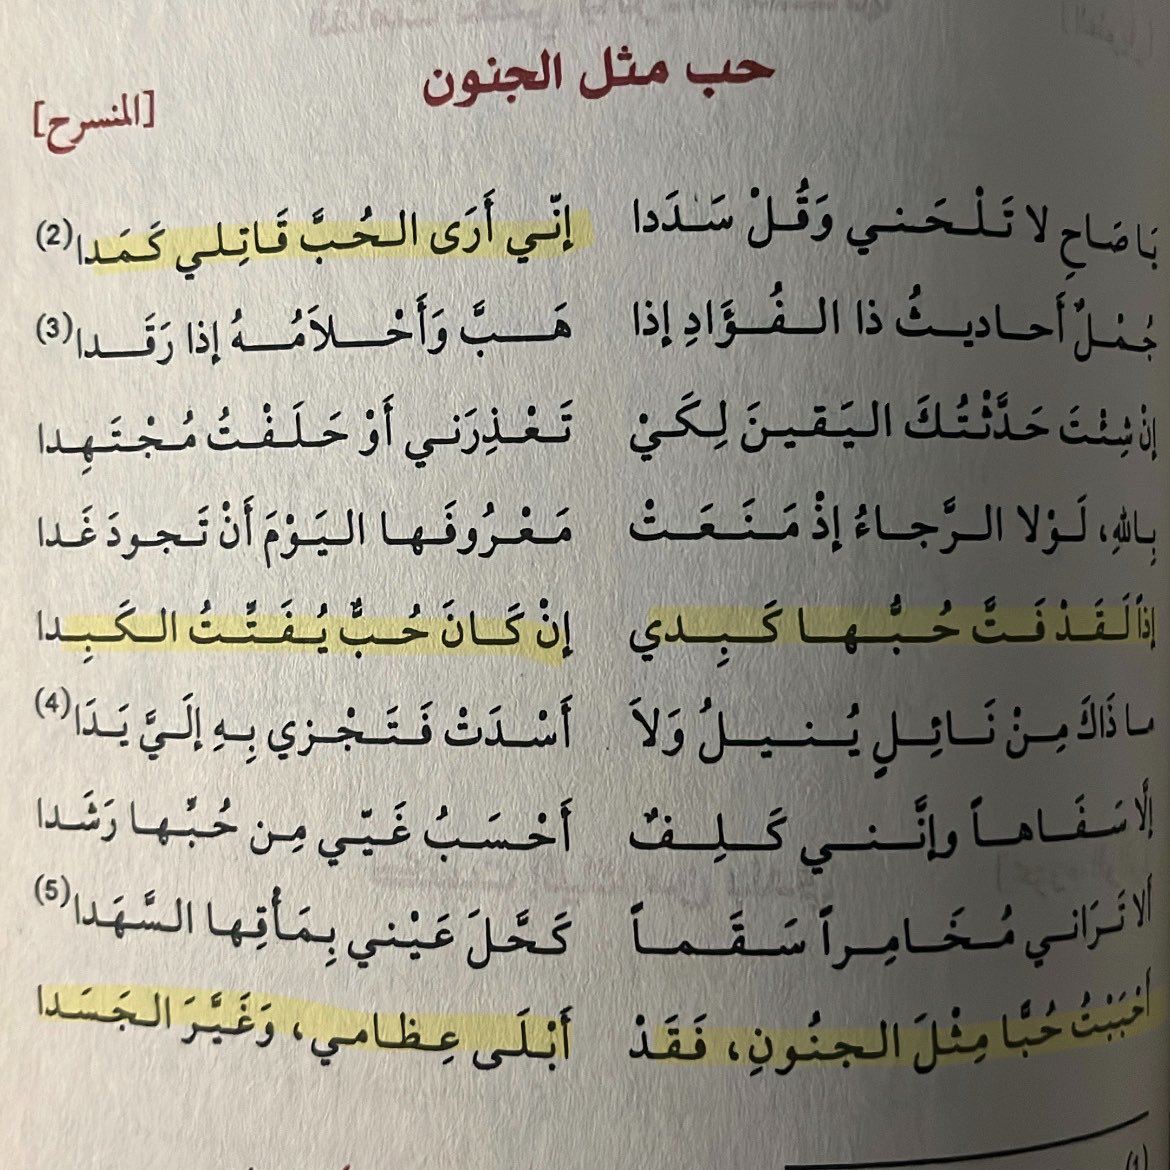 حب مثل الجنون
[المنسرح]
يَا صَاحِ لا تَلْحَني وَقُلْ سَدَدا إنّي أَرَى الحُبَّ قَاتِلي كَمَدا(2)
جُمْلٌ أَحاديثُ ذا الفُؤَادِ إذا هَبَّ وَأَحْلاَمُهُ إذا رَقَدا(3)
إنْ شِئْتَ حَدَّثْتُكَ اليَقينَ لِكَيْ تَعْذِرَني أَوْ حَلَفْتُ مُجْتَهِدا
بِاللهِ، لَوْلا الرَّجاءُ إذْ مَنَعَتْ مَعْرُوفَها اليَوْمَ أَنْ تَجودَ غَدا
إذاً لَقَدْ فَتَّ حُبُّها كَبِدي إنْ كَانَ حُبٌّ يُفَتِّتُ الكَبِدا
ما ذَاكَ مِنْ نَائِلٍ يُنيلُ وَلاَ أَسْدَتْ فَتَجْزي بِهِ إلَيَّ يَدَا(4)
إلَّا سَفَاهاً وإنَّني كَلِفٌ أَحْسَبُ غَيّي مِن حُبِّها رَشَدا
ألا تَرَاني مُخَامِراً سَقَماً كَحَّلَ عَيْني بِمَأْقِها السَّهَدا(5)
أحْبَبْتُ حُبًّا مِثْلَ الجنُونِ، فَقَدْ أَبْلَى عِظامي، وَغَيَّرَ الجَسَدا
(1)